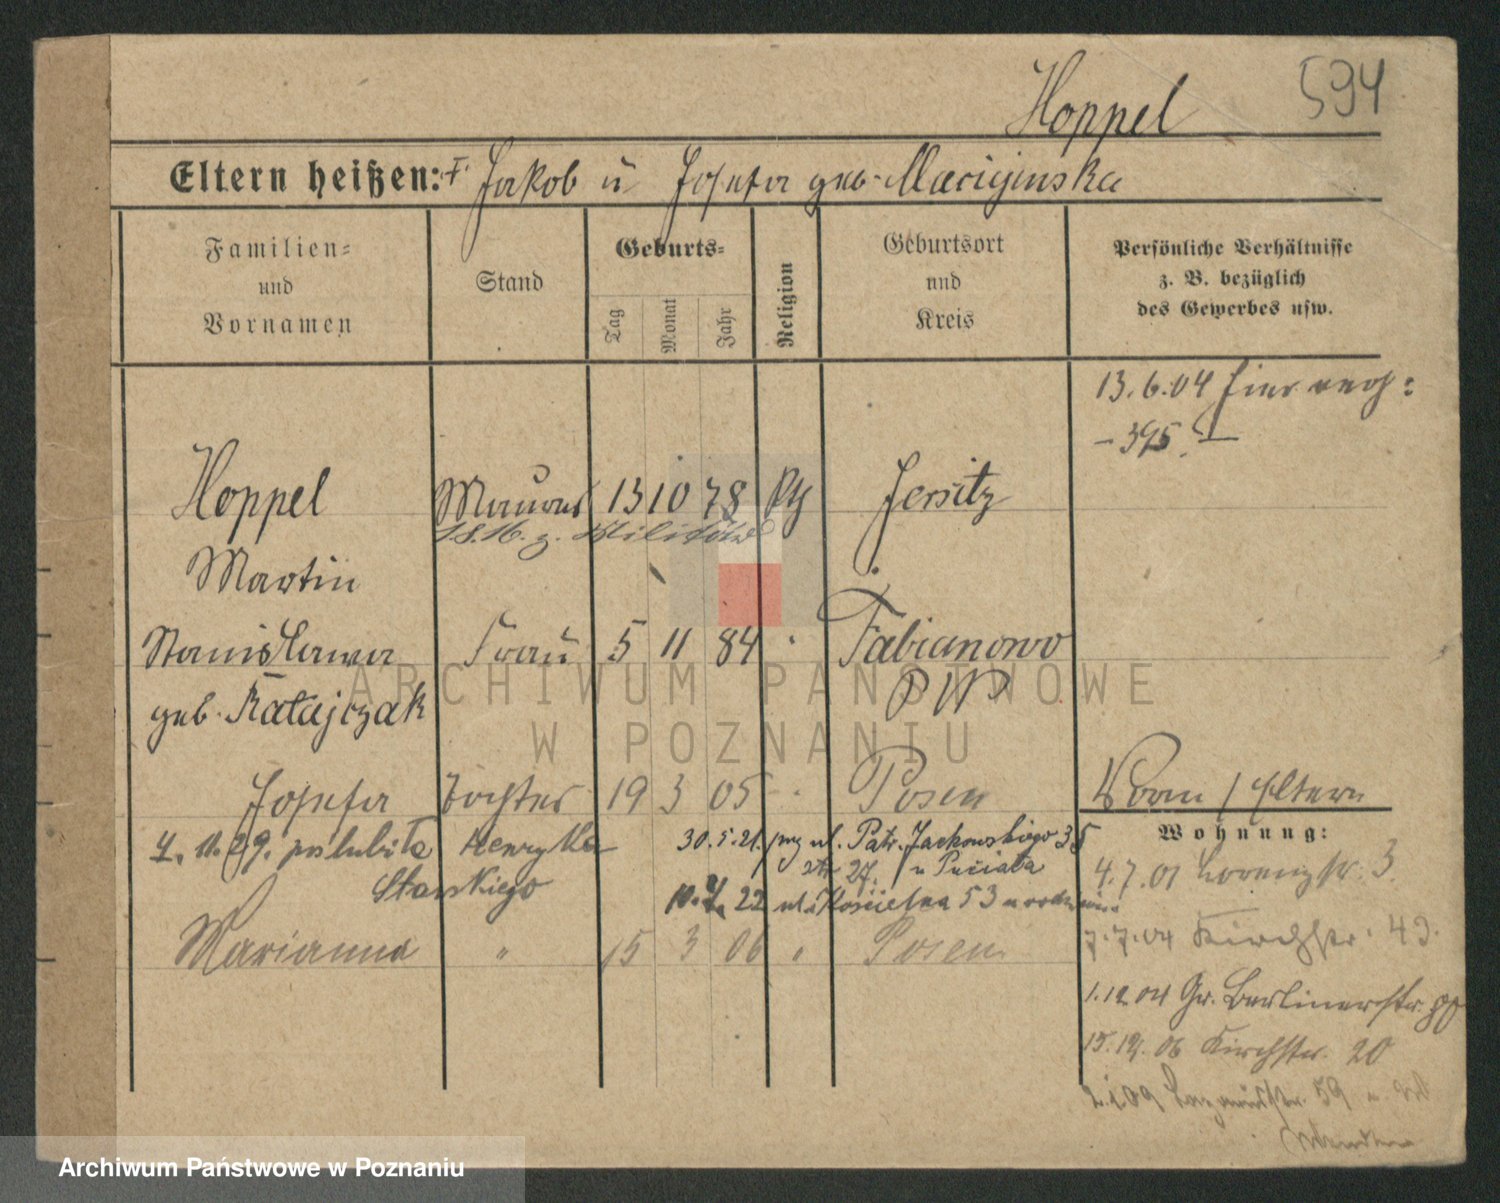 594
Hoppel
Eltern heißen: Jakob u Josefa geb.
Familien- und Vornamen
Stand
Geburts-
Tag
Monat
Jahr
Religion
Geburtsort und Kreis
Persönliche Verhältnisse z. B. bezüglich des Gewerbes usw.
13.6.04 hier
- 395. -
Hoppel Maurer 13 10 78 Kth Jersitz
z. Militär
Martin
Stanislawa Frau 5 11 84 " Fabianowo
geb. Ratajczak P W
Josefa Tochter 19 3 05 " Posen
Eltern
Wohnung:
4. 11. 29. poslubiła Henryka 30.5.21. przy ul. Patr. Jackowskiego 35
Starskiego
27. u Puciata
22 ul. Kościelna 53 u
Marianna " 15 3 06 " Posen
4.7.01 Lorenzstr. 3.
7.7.04 Kirchstr. 43.
1.12 04 Gr. Berlinerstr.
15.12. 06 Kirchstr. 20
2.1.09 59
ARCHIWUM PAŃSTWOWE
W POZNANIU
Archiwum Państwowe w Poznaniu